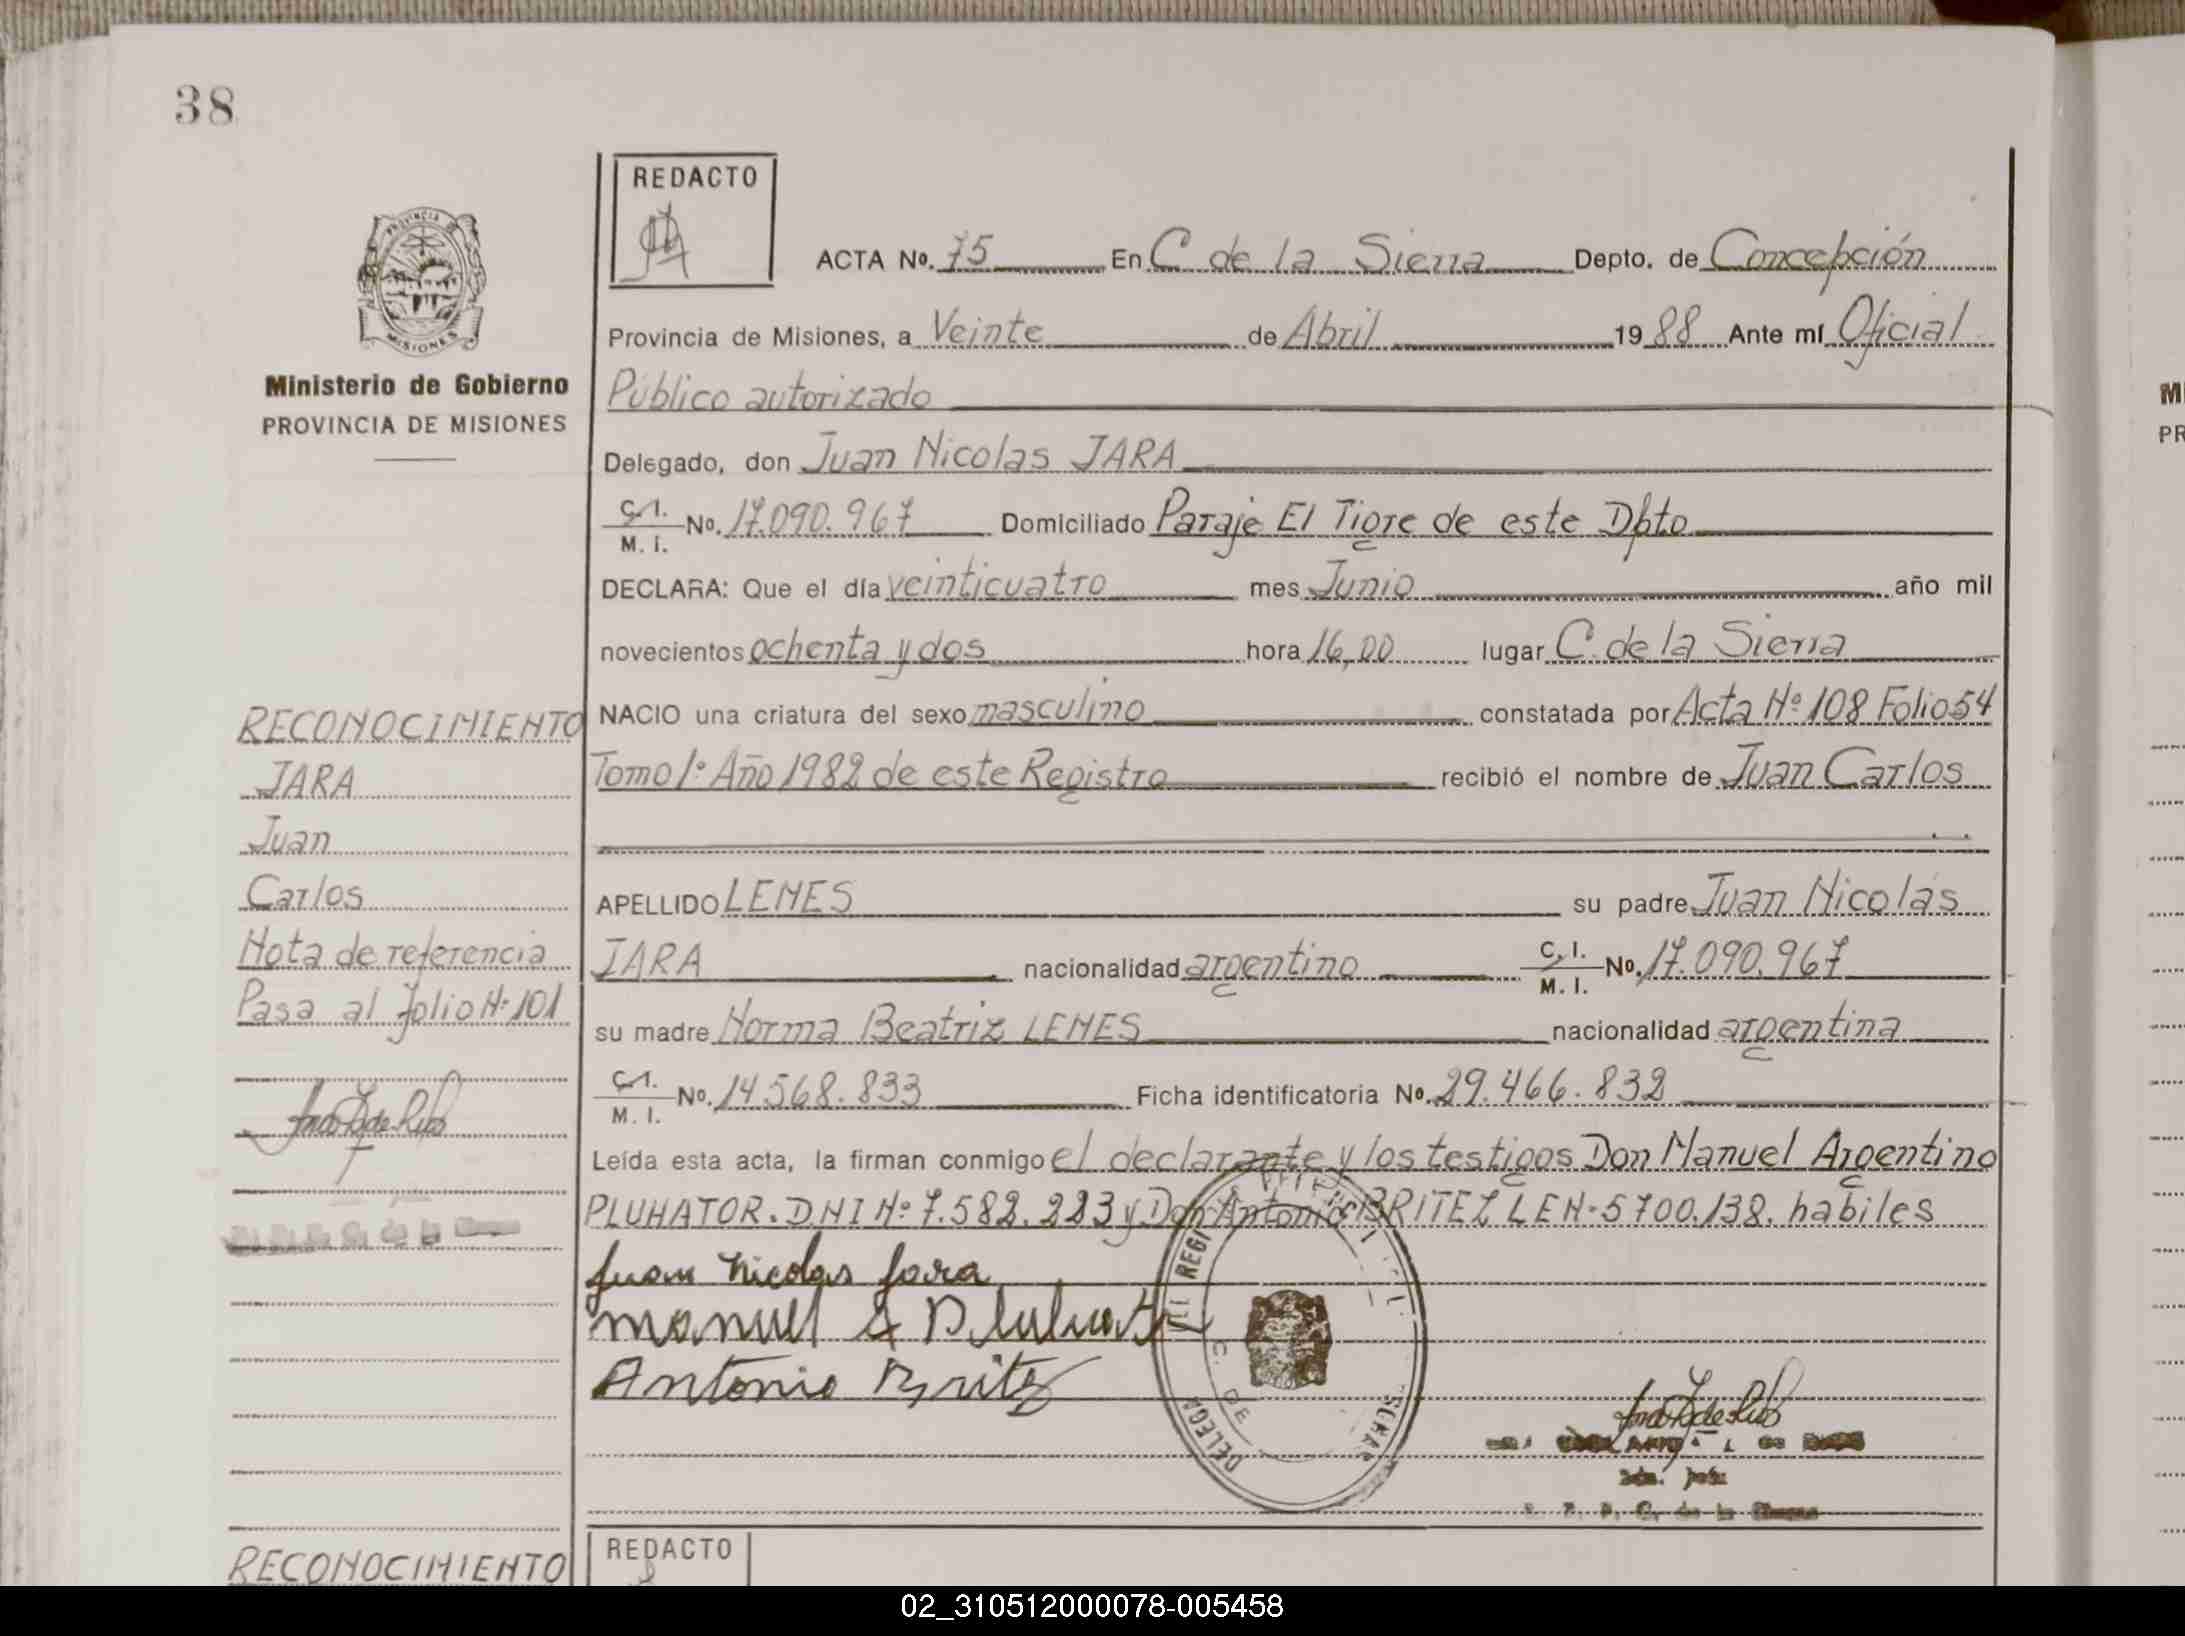 38
REDACTO
ACTA No. 75 En C de la Sierra Depto. de Concepción
Provincia de Misiones, a Veinte de Abril 1988 Ante mí Oficial
Público autorizado
Delegado, don Juan Nicolas JARA
C. I. M. I. No. 17.090.967 Domiciliado Paraje El Tigre de este Dpto
DECLARA: Que el día veinticuatro mes Junio año mil
novecientos ochenta y dos hora 16,00 lugar C. de la Sierra
NACIO una criatura del sexo masculino constatada por Acta Nº 108 Folio 54
Tomo 1º Año 1982 de este Registro recibió el nombre de Juan Carlos
APELLIDO LEMES su padre Juan Nicolás
JARA nacionalidad argentino C. I. M. I. No. 17.090.967
su madre Norma Beatriz LEMES nacionalidad argentina
C. I. M. I. No. 14.568.833 Ficha identificatoria No. 29.466.832
Leída esta acta, la firman conmigo el declarante y los testigos Don Manuel Argentino
PLUHATOR. DNI Nº 7.582.223 y Don Antonio BRITEZ LE Nº 5700.138. habiles
Juan Nicolas Jara
Manuel A
Antonio Britez
PROVINCIA
MISIONES
Ministerio de Gobierno
PROVINCIA DE MISIONES
RECONOCIMIENTO
JARA
Juan
Carlos
Nota de referencia
Pasa al folio Nº 101
RECONOCIMIENTO
REDACTO
02_310512000078-005458